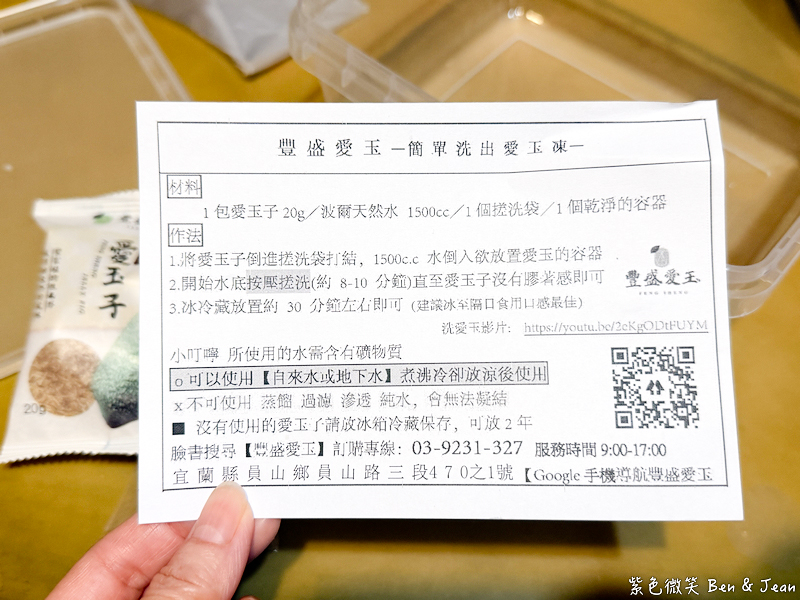 豐盛愛玉 —簡單洗出愛玉凍—
材料
1包愛玉子20g／波爾天然水 1500cc／1個搓洗袋／1個乾淨的容器
作法
1.將愛玉子倒進搓洗袋打結，1500c.c 水倒入欲放置愛玉的容器
2.開始水底按壓搓洗(約 8-10 分鐘)直至愛玉子沒有膠著感即可
3.冰冷藏放置約 30 分鐘左右即可 (建議冰至隔日食用口感最佳)
豐盛愛玉
洗愛玉影片： https://youtu.be/2eKgODtFUYM
小叮嚀 所使用的水需含有礦物質
o 可以使用【自來水或地下水】煮沸冷卻放涼後使用
x 不可使用 蒸餾 過濾 滲透 純水，會無法凝結
■ 沒有使用的愛玉子請放冰箱冷藏保存，可放 2 年
臉書搜尋【豐盛愛玉】訂購專線：03-9231-327 服務時間 9:00-17:00
宜蘭縣員山鄉員山路三段470之1號【Google 手機導航豐盛愛玉
愛玉子
20g
紫色微笑 Ben & Jean